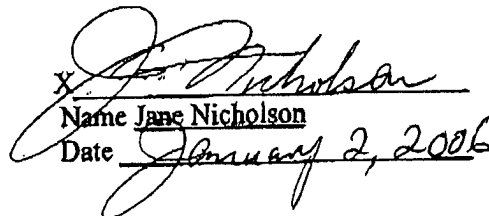 X J Nicholson
Name Jane Nicholson
Date January 2, 2006